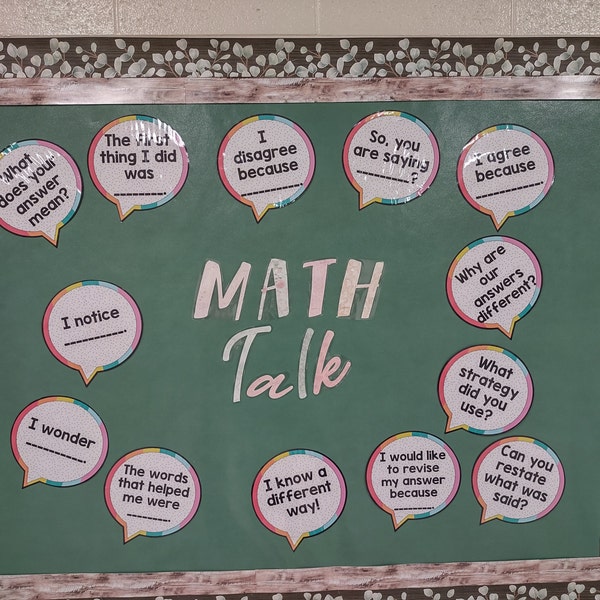 What
does your
answer
mean?
The first
thing I did
was
________.
I
disagree
because
________.
So, you
are saying
________?
I agree
because
________.
MATH
Talk
Why are
our
answers
different?
I notice
________.
What
strategy
did you
use?
I wonder
________.
The words
that helped
me were
________.
I know a
different
way!
I would like
to revise
my answer
because
________.
Can you
restate
what was
said?